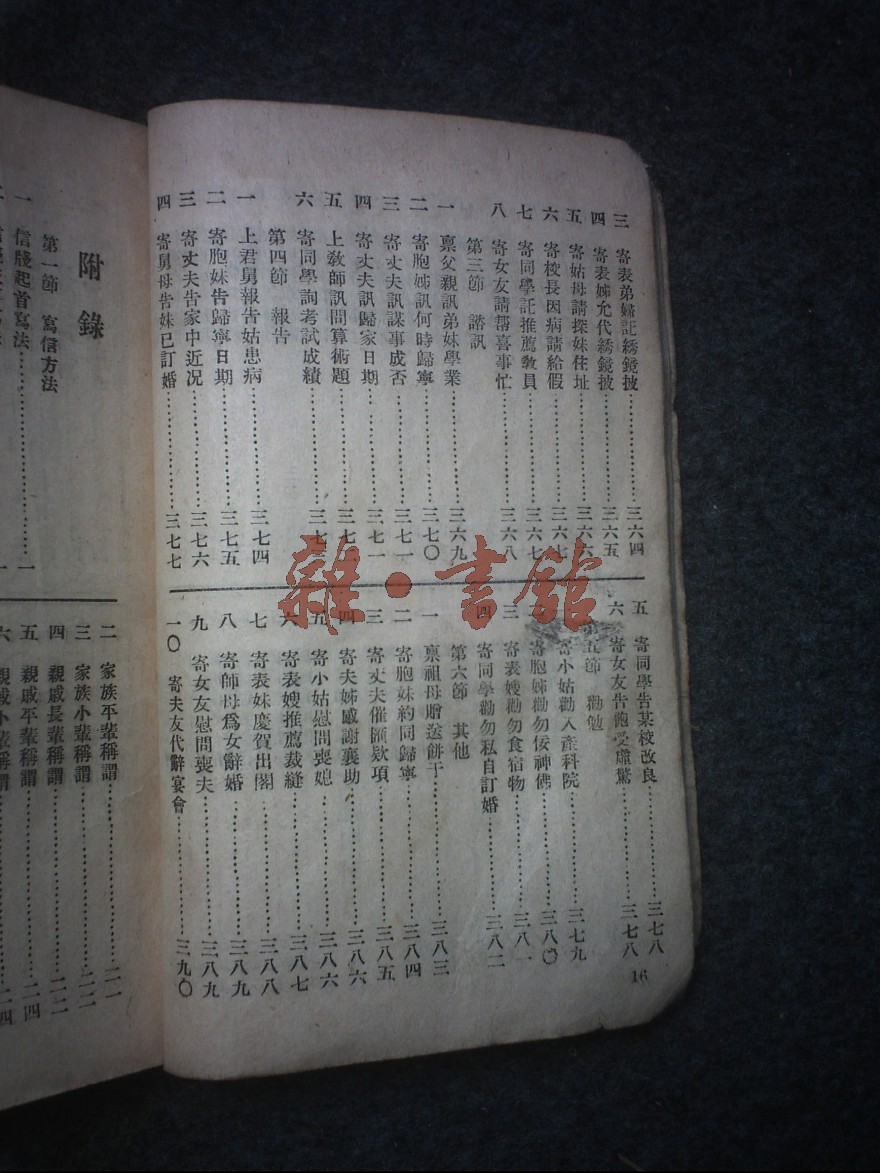 三 寄表弟婦託綉鏡披……三六四
四 寄表姊允代綉鏡披……三六五
五 寄姑母請探妹住址……三六六
六 寄校長因病請給假……三六七
七 寄同學託推薦敎員……三六七
八 寄女友請幫喜事忙……三六八
第三節 諮訊
一 稟父親訊弟妹學業……三六九
二 寄胞姊訊何時歸寧……三七〇
三 寄丈夫訊謀事成否……三七一
四 寄丈夫訊歸家日期……三七一
五 上敎師訊問算術題……三七
六 寄同學詢考試成績……三七
第四節 報告
一 上君舅報告姑患病……三七四
二 寄胞妹告歸寧日期……三七五
三 寄丈夫告家中近况……三七六
四 寄舅母告妹已訂婚……三七七
五 寄同學告某校改良……三七八
六 寄女友告飽受虛驚……三七八
第五節 勸勉
寄小姑勸入產科院……三七九
寄胞姊勸勿佞神佛……三八〇
三 寄表嫂勸勿食宿物……三八一
四 寄同學勸勿私自訂婚……三八二
第六節 其他
一 稟祖母贈送餅干……三八三
二 寄胞妹約同歸寧……三八四
三 寄丈夫催匯欵項……三八五
四 寄夫姊感謝襄助……三八六
五 寄小姑慰問喪媳……三八六
六 寄表嫂推薦裁縫……三八七
七 寄表妹慶賀出閣……三八八
八 寄師母爲女辭婚……三八九
九 寄女友慰問喪夫……三八九
一〇 寄夫友代辭宴會……三九〇
16
附錄
第一節 寫信方法
一 信牋起首寫法……一
二 家族平輩稱謂……二一
三 家族小輩稱謂……二二
四 親戚長輩稱謂……二二
五 親戚平輩稱謂……二四
六 親戚小輩稱謂……二四
雜·書館